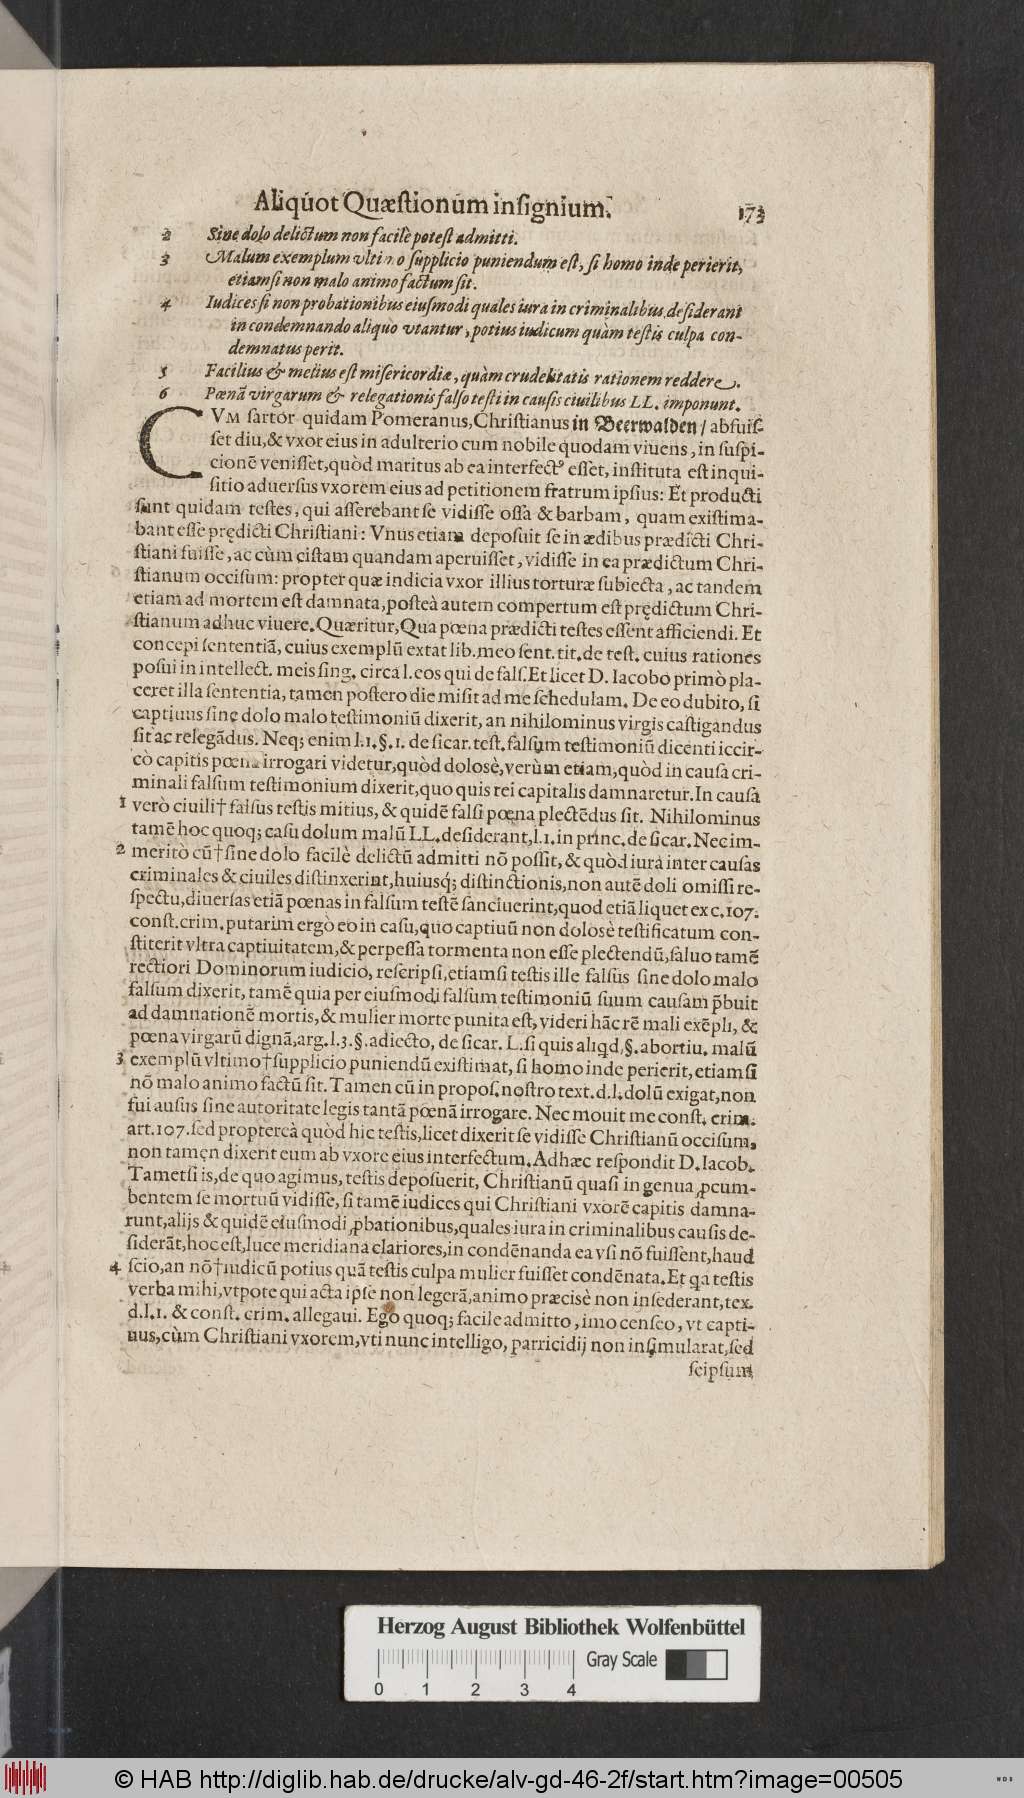 Aliquot Quæſtionum inſignium. 173
2 Sine dolo delictum non facilè poteſt admitti.
3 Malum exemplum vltimo ſupplicio puniendum eſt, ſi homo inde perierit,
etiamſi non malo animo factum ſit.
4 Iudices ſi non probationibus eiuſmodi quales iura in criminalibus deſiderant
in condemnando aliquo vtantur, potius iudicum quàm teſtis culpa con-
demnatus perit.
5 Facilius & melius eſt miſericordiæ, quàm crudelitatis rationem reddere.
6 Pœnã virgarum & relegationis falſo teſti in cauſis ciuilibus LL. imponunt.
CVM ſartor quidam Pomeranus, Chriſtianus in Beerwalden / abfuiſ-
ſet diu, & vxor eius in adulterio cum nobile quodam viuens, in ſuſpi-
cionẽ veniſſet, quòd maritus ab ea interfectꝰ eſſet, inſtituta eſt inqui-
ſitio aduerſus vxorem eius ad petitionem fratrum ipſius: Et producti
ſunt quidam teſtes, qui aſſerebant ſe vidiſſe oſſa & barbam, quam exiſtima-
bant eſſe prędicti Chriſtiani: Vnus etiam depoſuit ſe in ædibus prædicti Chri-
ſtiani fuiſſe, ac cùm ciſtam quandam aperuiſſet, vidiſſe in ea prædictum Chri-
ſtianum occiſum: propter quæ indicia vxor illius torturæ ſubiecta, ac tandem
etiam ad mortem eſt damnata, poſteà autem compertum eſt prędictum Chri-
ſtianum adhuc viuere. Quæritur, Qua pœna prædicti teſtes eſſent afficiendi. Et
concepi ſententiã, cuius exemplũ extat lib. meo ſent. tit. de teſt. cuius rationes
poſui in intellect. meis ſing. circa l. eos qui de falſ. Et licet D. Iacobo primò pla-
ceret illa ſententia, tamen poſtero die miſit ad me ſchedulam. De eo dubito, ſi
captiuus ſine dolo malo teſtimoniũ dixerit, an nihilominus virgis caſtigandus
ſit ac relegãdus. Neq; enim l.1.§.1. de ſicar. teſt. falſum teſtimoniũ dicenti iccir-
cò capitis pœna irrogari videtur, quòd dolosè, verùm etiam, quòd in cauſa cri-
minali falſum teſtimonium dixerit, quo quis rei capitalis damnaretur. In cauſa
1 verò ciuili† falſus teſtis mitius, & quidẽ falſi pœna plectẽdus ſit. Nihilominus
tamẽ hoc quoq; caſu dolum malũ LL. deſiderant, l.1. in princ. de ſicar. Nec im-
2 meritò cũ† ſine dolo facilè delictũ admitti nõ poſſit, & quòd iura inter cauſas
criminales & ciuiles diſtinxerint, huiusq́; diſtinctionis, non autẽ doli omiſſi re-
ſpectu, diuerſas etiã pœnas in falſum teſtẽ ſanciuerint, quod etiã liquet ex c. 107.
conſt. crim. putarim ergò eo in caſu, quo captiuũ non dolosè teſtificatum con-
ſtiterit vltra captiuitatem, & perpeſſa tormenta non eſſe plectendũ, ſaluo tamẽ
rectiori Dominorum iudicio, reſcripſi, etiamſi teſtis ille falſus ſine dolo malo
falſum dixerit, tamẽ quia per eiuſmodi falſum teſtimoniũ ſuum cauſam p̃buit
ad damnationẽ mortis, & mulier morte punita eſt, videri hãc rẽ mali exẽpli, &
pœna virgarũ dignã, arg. l.3.§. adiecto, de ſicar. L. ſi quis aliqd, §. abortiu. malũ
3 exemplũ vltimo† ſupplicio puniendũ exiſtimat, ſi homo inde perierit, etiamſi
nõ malo animo factũ ſit. Tamen cũ in propoſ. noſtro text. d. l. dolũ exigat, non
fui auſus ſine autoritate legis tantã pœnã irrogare. Nec mouit me conſt. crim.
art. 107. ſed proptereà quòd hic teſtis, licet dixerit ſe vidiſſe Chriſtianũ occiſum,
non tamen dixerit eum ab vxore eius interfectum. Adhæc reſpondit D. Iacob.
Tametſi is, de quo agimus, teſtis depoſuerit, Chriſtianũ quaſi in genua ꝓcum-
bentem ſe mortuũ vidiſſe, ſi tamẽ iudices qui Chriſtiani vxorẽ capitis damna-
runt, alijs & quidẽ eiuſmodi ꝓbationibus, quales iura in criminalibus cauſis de-
ſiderãt, hoc eſt, luce meridiana clariores, in condẽnanda ea vſi nõ fuiſſent, haud
4 ſcio, an nõ† iudicũ potius quã teſtis culpa mulier fuiſſet condẽnata. Et qa teſtis
verba mihi, vtpote qui acta ipſe non legerã, animo præcisè non inſederant, tex.
d. l.1. & conſt. crim. allegaui. Ego quoq; facile admitto, imo cenſeo, vt capti-
uus, cùm Chriſtiani vxorem, vti nunc intelligo, parricidij non inſimularat, ſed
ſeipſum
Herzog August Bibliothek Wolfenbüttel
Gray Scale
0 1 2 3 4
© HAB http://diglib.hab.de/drucke/alv-gd-46-2f/start.htm?image=00505